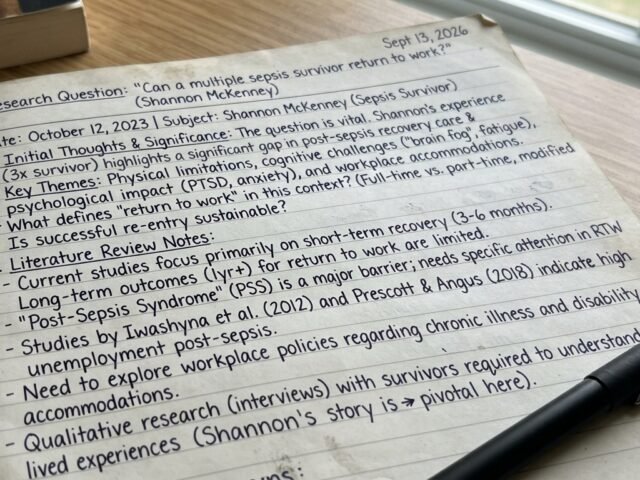 Sept 13, 2026
esearch Question: "Can a multiple sepsis survivor return to work?"
(Shannon McKenney)
te: October 12, 2023 | Subject: Shannon McKenney (Sepsis Survivor)
Initial Thoughts & Significance: The question is vital. Shannon's experience
(3x survivor) highlights a significant gap in post-sepsis recovery care &
Key Themes: Physical limitations, cognitive challenges ("brain fog", fatigue),
psychological impact (PTSD, anxiety), and workplace accommodations.
What defines "return to work" in this context? (Full-time vs. part-time, modified
Is successful re-entry sustainable?
- Literature Review Notes:
- Current studies focus primarily on short-term recovery (3-6 months).
Long-term outcomes (1yr+) for return to work are limited.
- "Post-Sepsis Syndrome" (PSS) is a major barrier; needs specific attention in RTW
- Studies by Iwashyna et al. (2012) and Prescott & Angus (2018) indicate high
unemployment post-sepsis.
- Need to explore workplace policies regarding chronic illness and disability
accommodations.
- Qualitative research (interviews) with survivors required to understand
lived experiences (Shannon's story is → pivotal here).